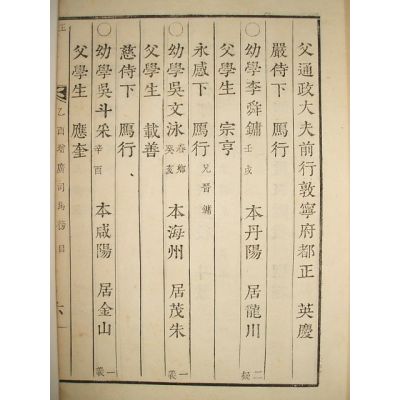 父通政大夫前行敦寧府都正 英慶
嚴侍下 鴈行
○幼學李舜鏞 壬戌 本丹陽 居龍川 二疑
父學生 宗亨
永感下 鴈行 兄晉鏞
○幼學吳文泳 癸亥 本海州 居茂朱 一義
父學生 載善
慈侍下 鴈行
○幼學吳斗采 辛酉 本咸陽 居金山 一義
父學生 應奎
乙酉增廣司馬榜目 六